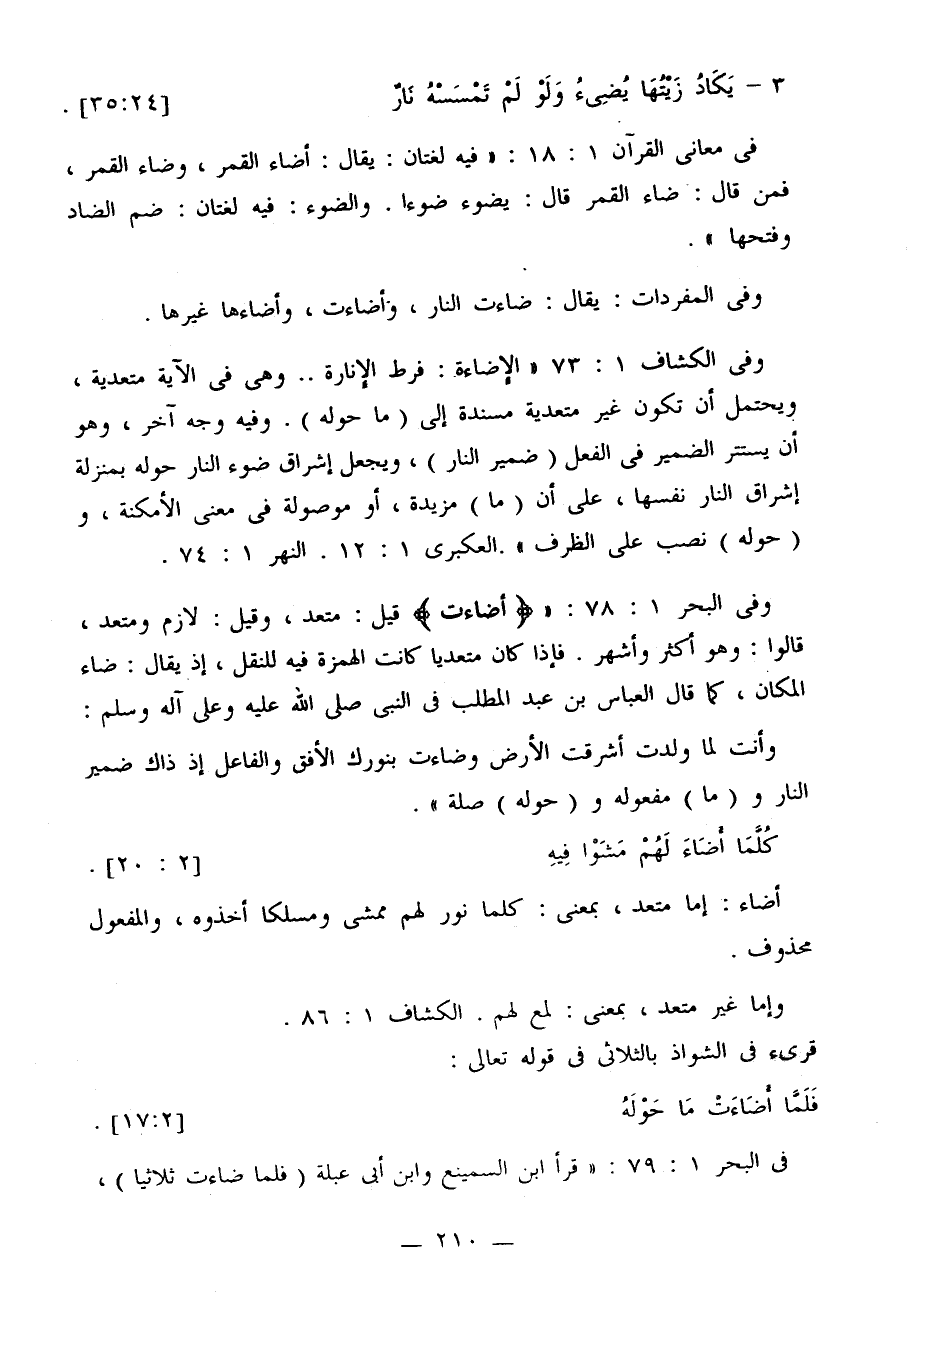 ٣ – يَكَادُ زَيْتُهَا يُضِىءُ وَلَوْ لَمْ تَمْسَسْهُ نَارٌ [٣٥:٢٤] .
فى معانى القرآن ١ : ١٨ : « فيه لغتان : يقال : أضاء القمر ، وضاء القمر ،
فمن قال : ضاء القمر قال : يضوء ضوءا . والضوء : فيه لغتان : ضم الضاد
وفتحها » .
وفى المفردات : يقال : ضاءت النار ، وأضاءت ، وأضاءها غيرها .
وفى الكشاف ١ : ٧٣ « الإضاءة : فرط الإنارة .. وهى فى الآية متعدية ،
ويحتمل أن تكون غير متعدية مسندة إلى ( ما حوله ) . وفيه وجه آخر ، وهو
أن يستتر الضمير فى الفعل ( ضمير النار ) ، ويجعل إشراق ضوء النار حوله بمنزلة
إشراق النار نفسها ، على أن ( ما ) مزيدة ، أو موصولة فى معنى الأمكنة ، و
( حوله ) نصب على الظرف » .العكبرى ١ : ١٢ . النهر ١ : ٧٤ .
وفى البحر ١ : ٧٨ : « ﴿ أضاءت ﴾ قيل : متعد ، وقيل : لازم ومتعد ،
قالوا : وهو أكثر وأشهر . فإذا كان متعديا كانت الهمزة فيه للنقل ، إذ يقال : ضاء
المكان ، كما قال العباس بن عبد المطلب فى النبى صلى الله عليه وعلى آله وسلم :
وأنت لما ولدت أشرقت الأرض وضاءت بنورك الأفق والفاعل إذ ذاك ضمير
النار و ( ما ) مفعوله و ( حوله ) صلة » .
كُلَّمَا أَضَاءَ لَهُمْ مَشَوْا فِيهِ [٢ : ٢٠] .
أضاء : إما متعد ، بمعنى : كلما نور لهم ممشى ومسلكا أخذوه ، والمفعول
محذوف .
وإما غير متعد ، بمعنى : لمع لهم . الكشاف ١ : ٨٦ .
قرىء فى الشواذ بالثلاثى فى قوله تعالى :
فَلَمَّا أَضَاءَتْ مَا حَوْلَهُ [١٧:٢] .
فى البحر ١ : ٧٩ : « قرأ ابن السميفع وابن أبى عبلة ( فلما ضاءت ثلاثيا ) ،
— ٢١٠ —